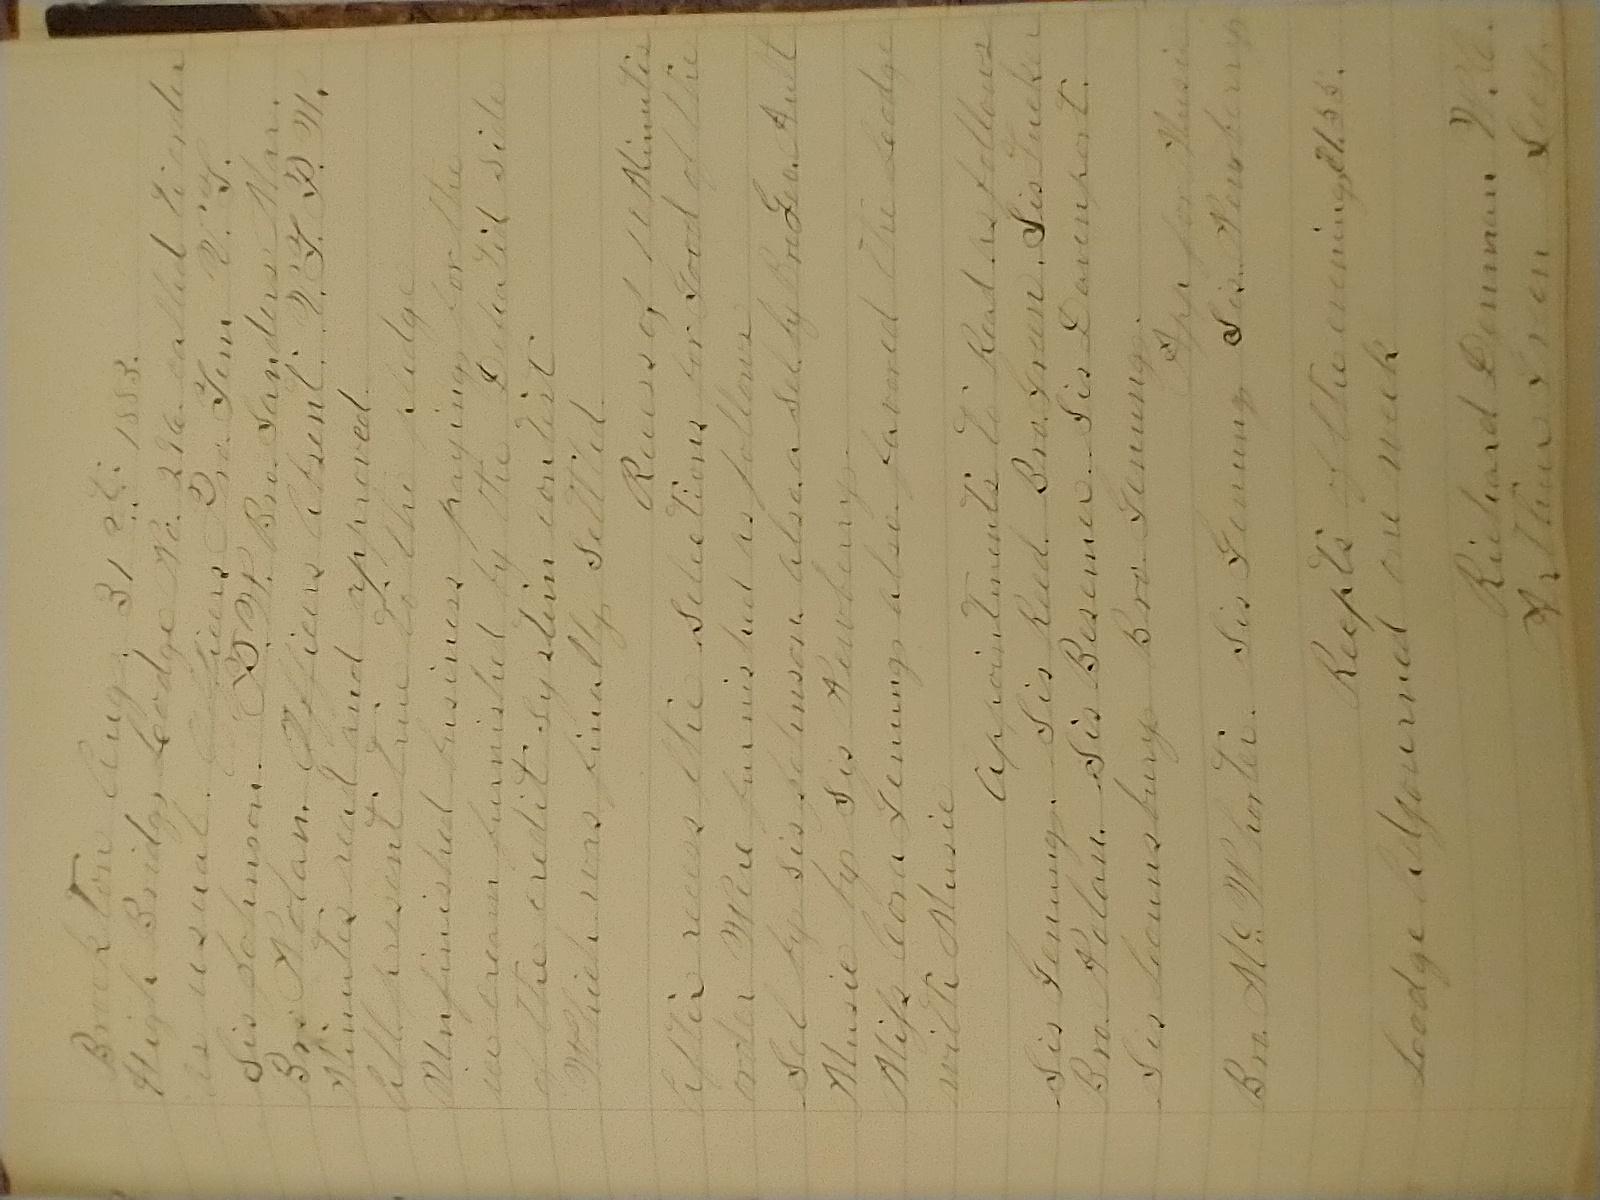 Brookton Aug. 31st 1883.
High Bridge Lodge No. 296. called to order
as usual. Officers Pro. Tem V. T.
Sis Johnson. P. W. Bro. Sanders Mar.
Bro Nolan. Officers Absent. V. T. P. W.
Minutes read and approved.
All present true to the pledge
Unfinished business paying for the
ice cream furnished by the Defeated Side
of the credit System contest
Which was finally Settled.
Recess of 10 Minutes
After recess the Selections for Good of the
order Were furnished as follows
Sel by Sis Johnson. also a Sel. by Bro Geo. Ault
Music by Sis Newberry.
Miss Cora Genung also favored the Lodge
with Music
Appointments to Read as follows
Sis Genung. Sis Reed. Bro. Green. Sis Tucker
Bro. Nolan. Sis Besemer. Sis Davenport.
Sis Lounsbury Bro. Genung.
App for Music
Bro. Mc Whorter. Sis Genung Sis. Newberry
Recpts of the evening 
Lodge Adjourned one week
Richard Denman W. C.
Arthur Green Secy.